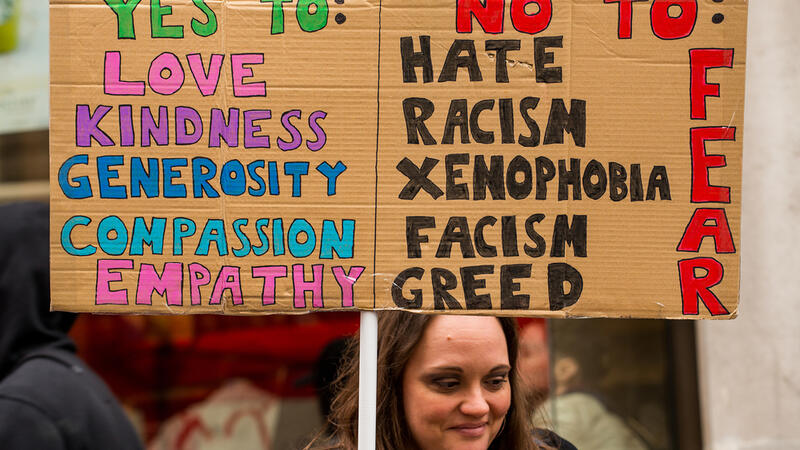 YES TO:
LOVE
KINDNESS
GENEROSITY
COMPASSION
EMPATHY
NO TO:
HATE
RACISM
XENOPHOBIA
FACISM
GREED
FEAR